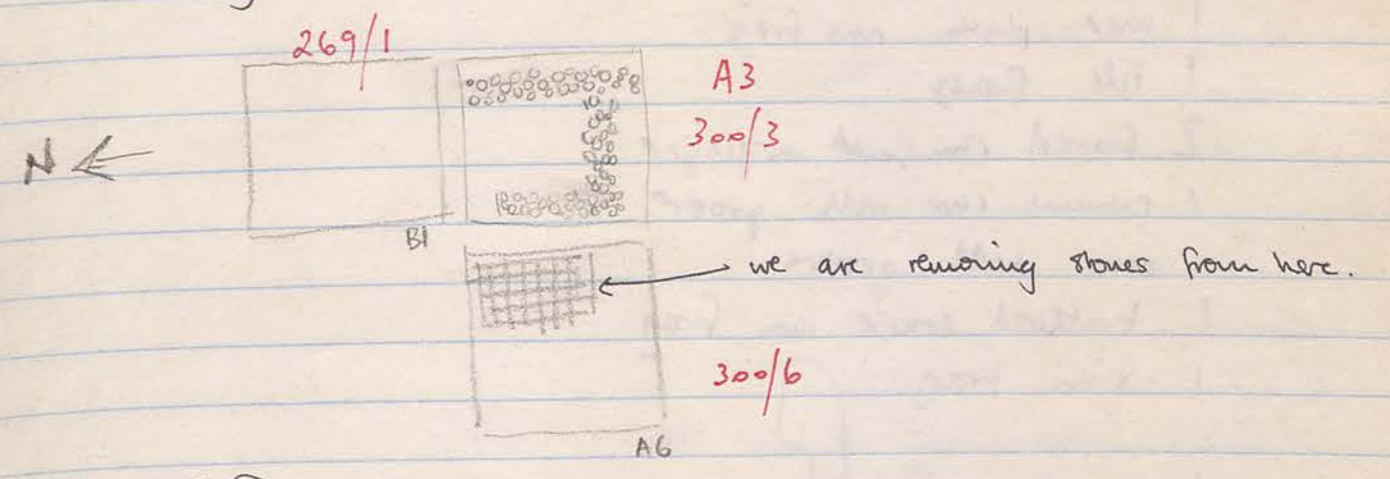 269/1
A3
300/3
N
B1
we are removing stones from here.
300/6
A6